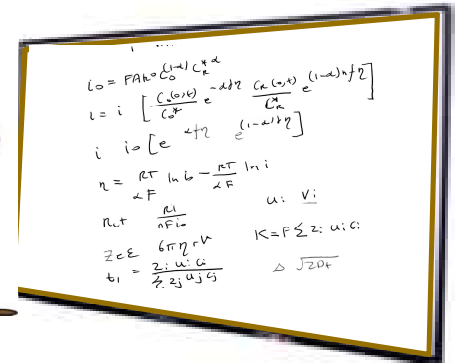 i₀ = FAk⁰ C₀^(1-α) C_R^*α
i = i [ C₀(0,t)/C₀* e^-αfη C_R(0,t)/C_R* e^(1-α)nfη ]
i i₀ [ e^-αfη e^(1-α)fη ]
η = RT/αF ln i₀ - RT/αF ln i
R_ct RT/nFi₀ u: Vi
ze ε 6πηrV K = F Σ zᵢ uᵢ cᵢ
t₁ = zᵢ uᵢ cᵢ / Σ zⱼ uⱼ cⱼ Δ √2Dt